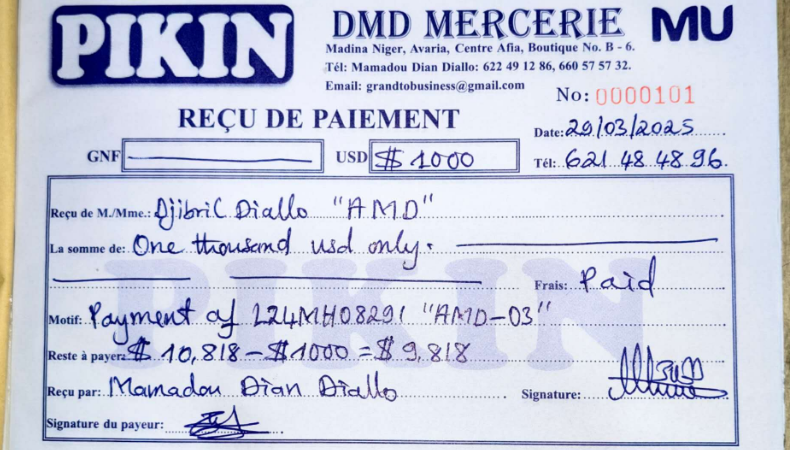 PIKIN
DMD MERCERIE MU
Madina Niger, Avaria, Centre Afia, Boutique No. B - 6.
Tél: Mamadou Dian Diallo: 622 49 12 86, 660 57 57 32.
Email: grandtobusiness@gmail.com
No: 0000101
REÇU DE PAIEMENT
Date: 29/03/2025
GNF USD $ 1000
Tél: 621 48 48 96.
Reçu de M./Mme.: Djibril Diallo "AMD"
La somme de: One thousand usd only.
Frais: Paid
PIKIN
Motif: Payment of L24MH08291 "AMD-03"
Reste à payer: $ 10,818 - $1000 = $ 9,818
Reçu par: Mamadou Dian Diallo Signature:
Signature du payeur: